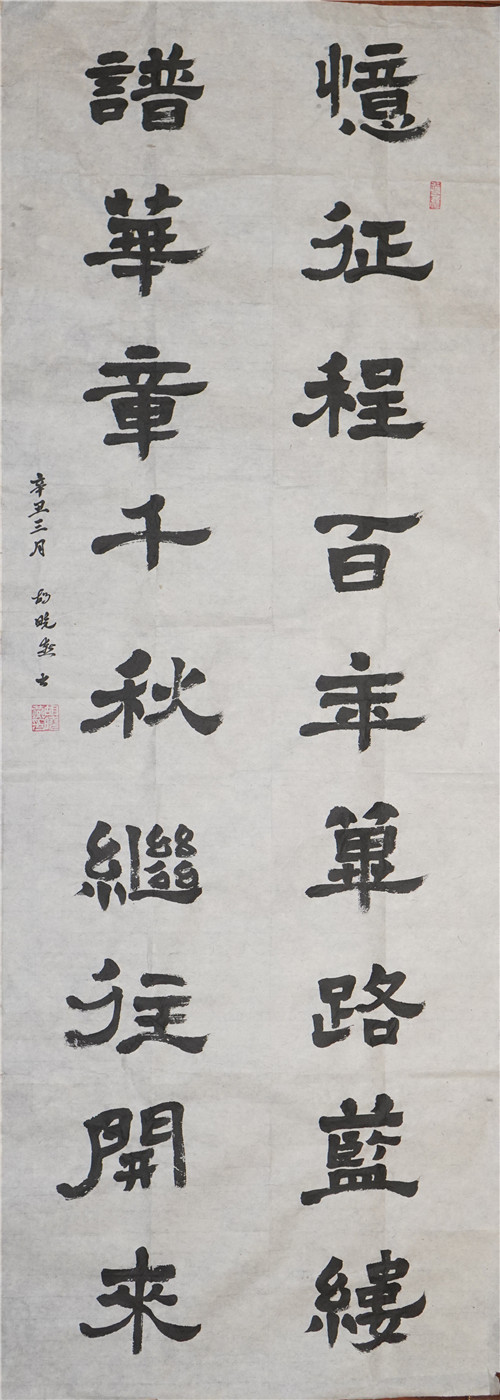 憶征程百年篳路藍縷
譜華章千秋繼往開來
辛丑三月 胡晓 书